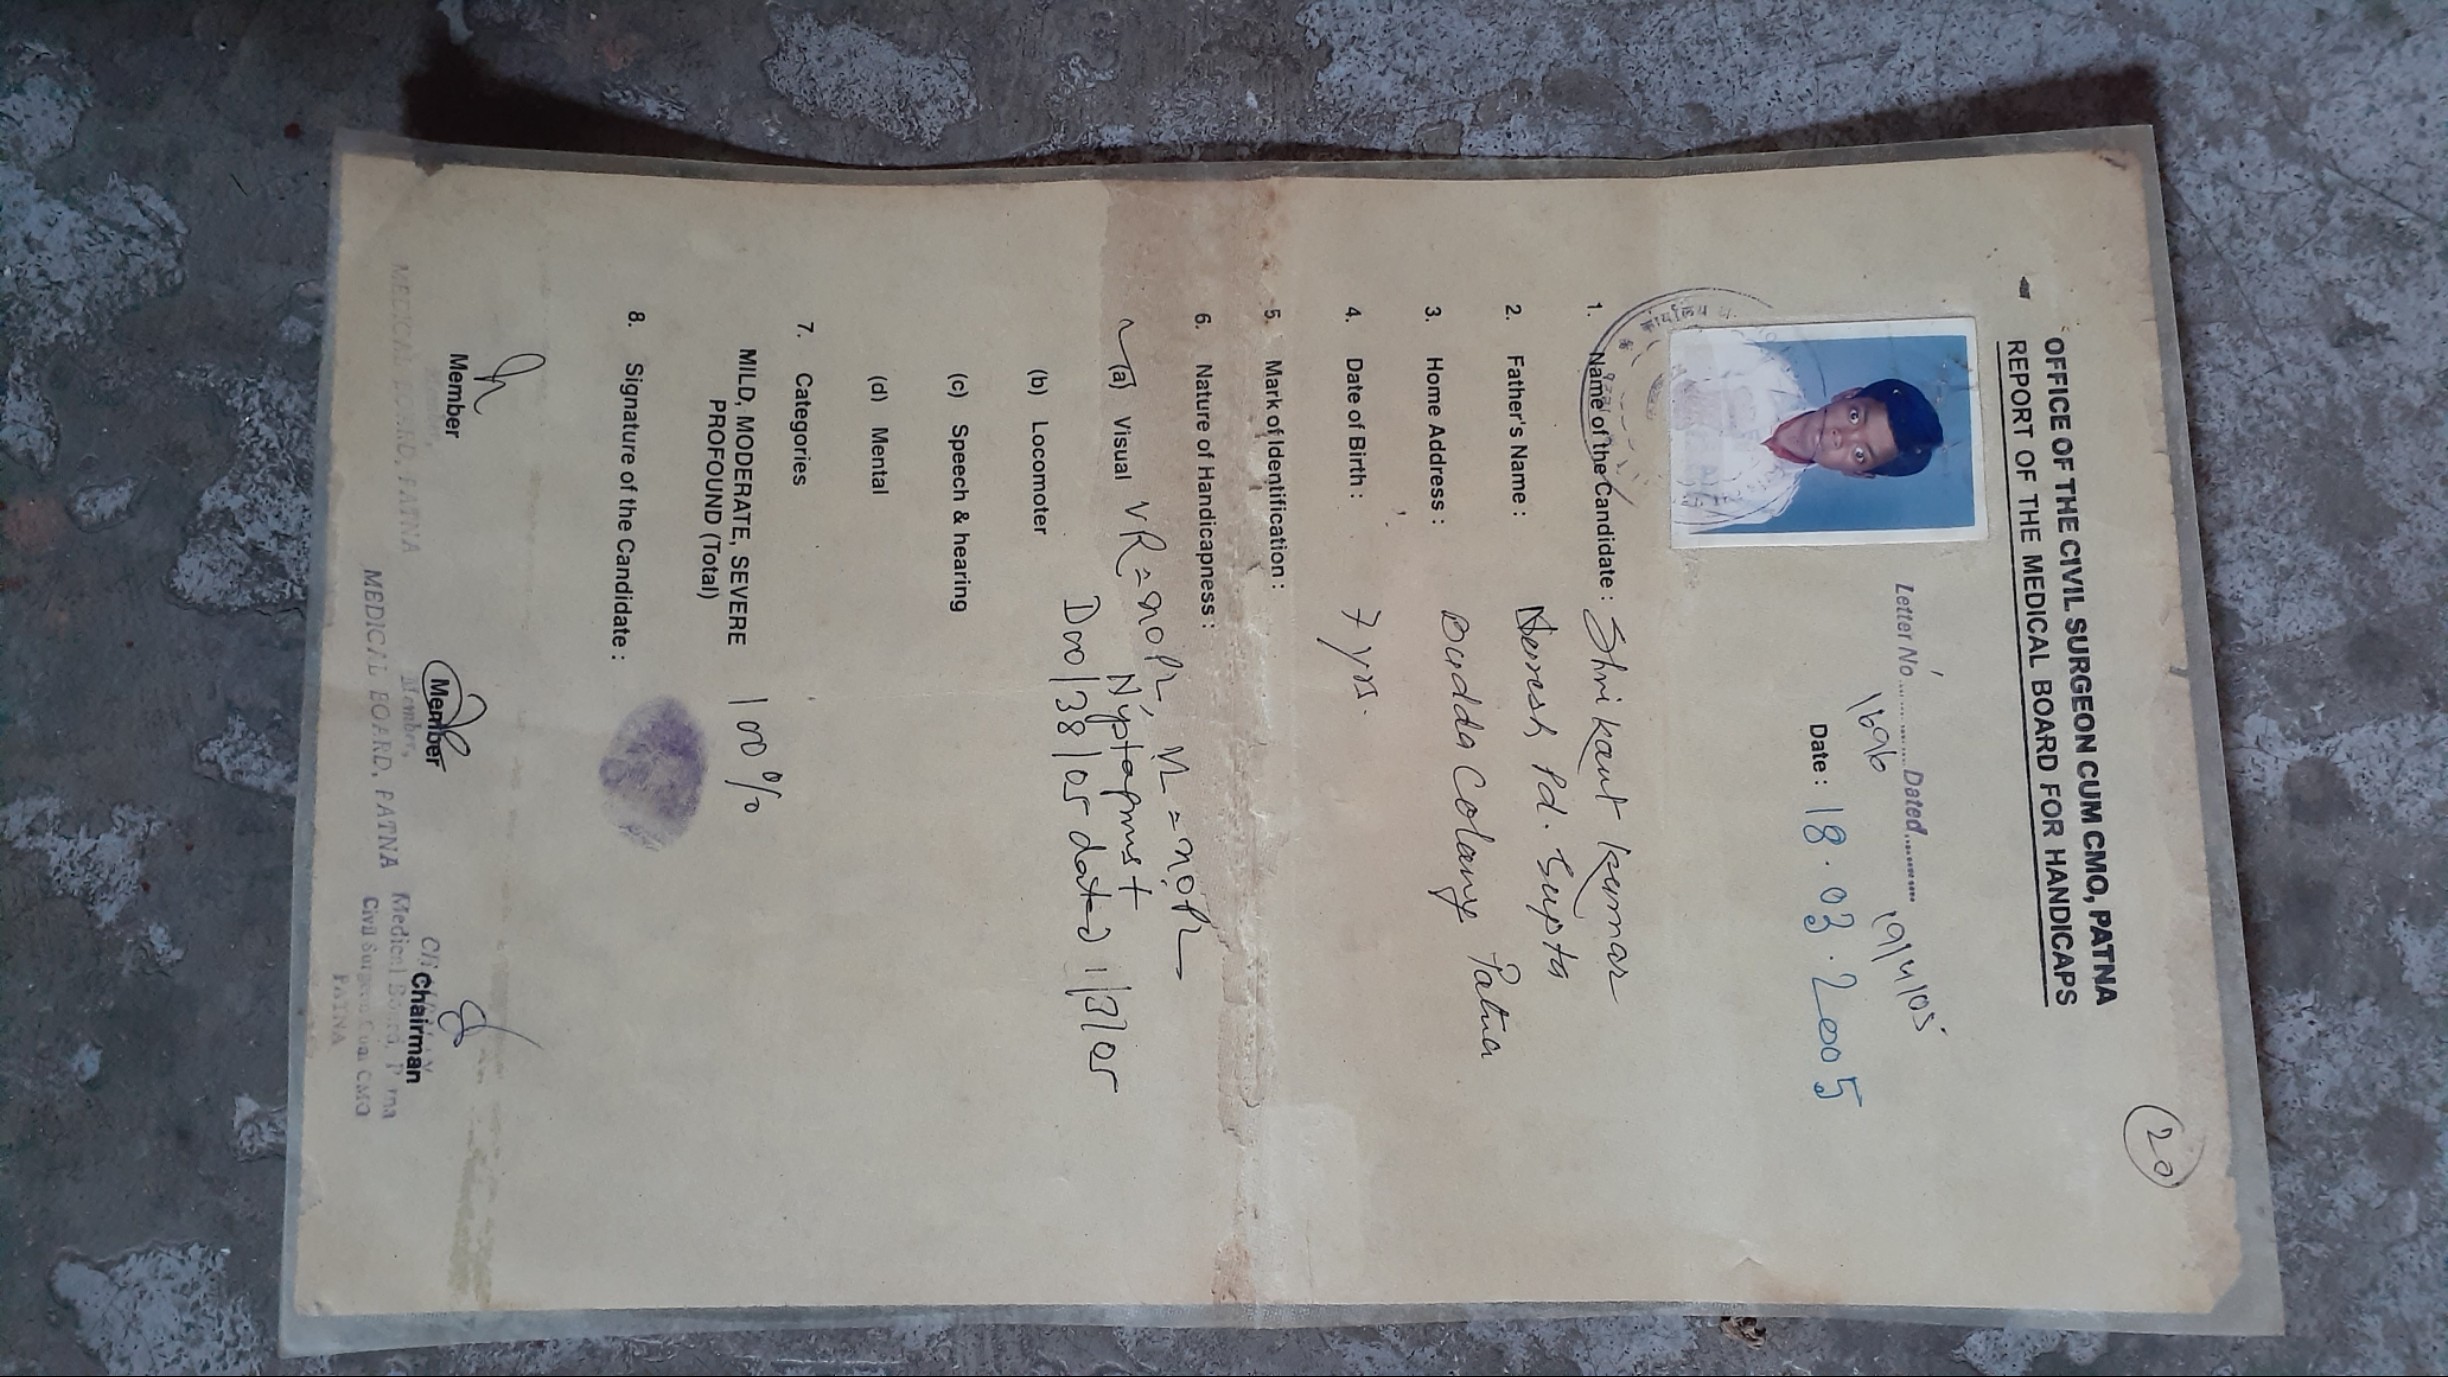 20
OFFICE OF THE CIVIL SURGEON CUM CMO, PATNA
REPORT OF THE MEDICAL BOARD FOR HANDICAPS
Letter No. Dated
1696 19/4/05
Date : 18.03.2005
1. Name of the Candidate : Shri Kant Kumar
2. Father's Name : Pd. Gupta
3. Home Address : Budda Colony Patna
4. Date of Birth : 7 yrs.
5. Mark of Identification :
6. Nature of Handicapness :
(a) Visual VR = noPL, VL = noPL
(b) Locomoter
(c) Speech & hearing
(d) Mental
7. Categories
MILD, MODERATE, SEVERE 100%
PROFOUND (Total)
8. Signature of the Candidate :
Member Member Chairman
Member,
MEDICAL BOARD, PATNA MEDICAL BOARD, PATNA Medical Board, Patna
Civil Surgeon Cum CMO
PATNA